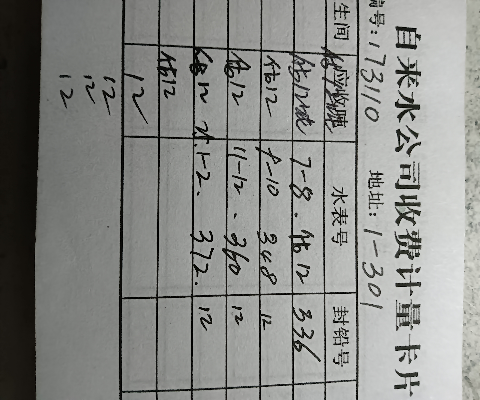 自来水公司收费计量卡片
编号: 173110 地址: 1-301
生间 水表号 封铅号
7-8. 估12 336
估12 9-10 348 12
估12 11-12. 360 12
估12 1-2. 372. 12
估12
12
12
12
12